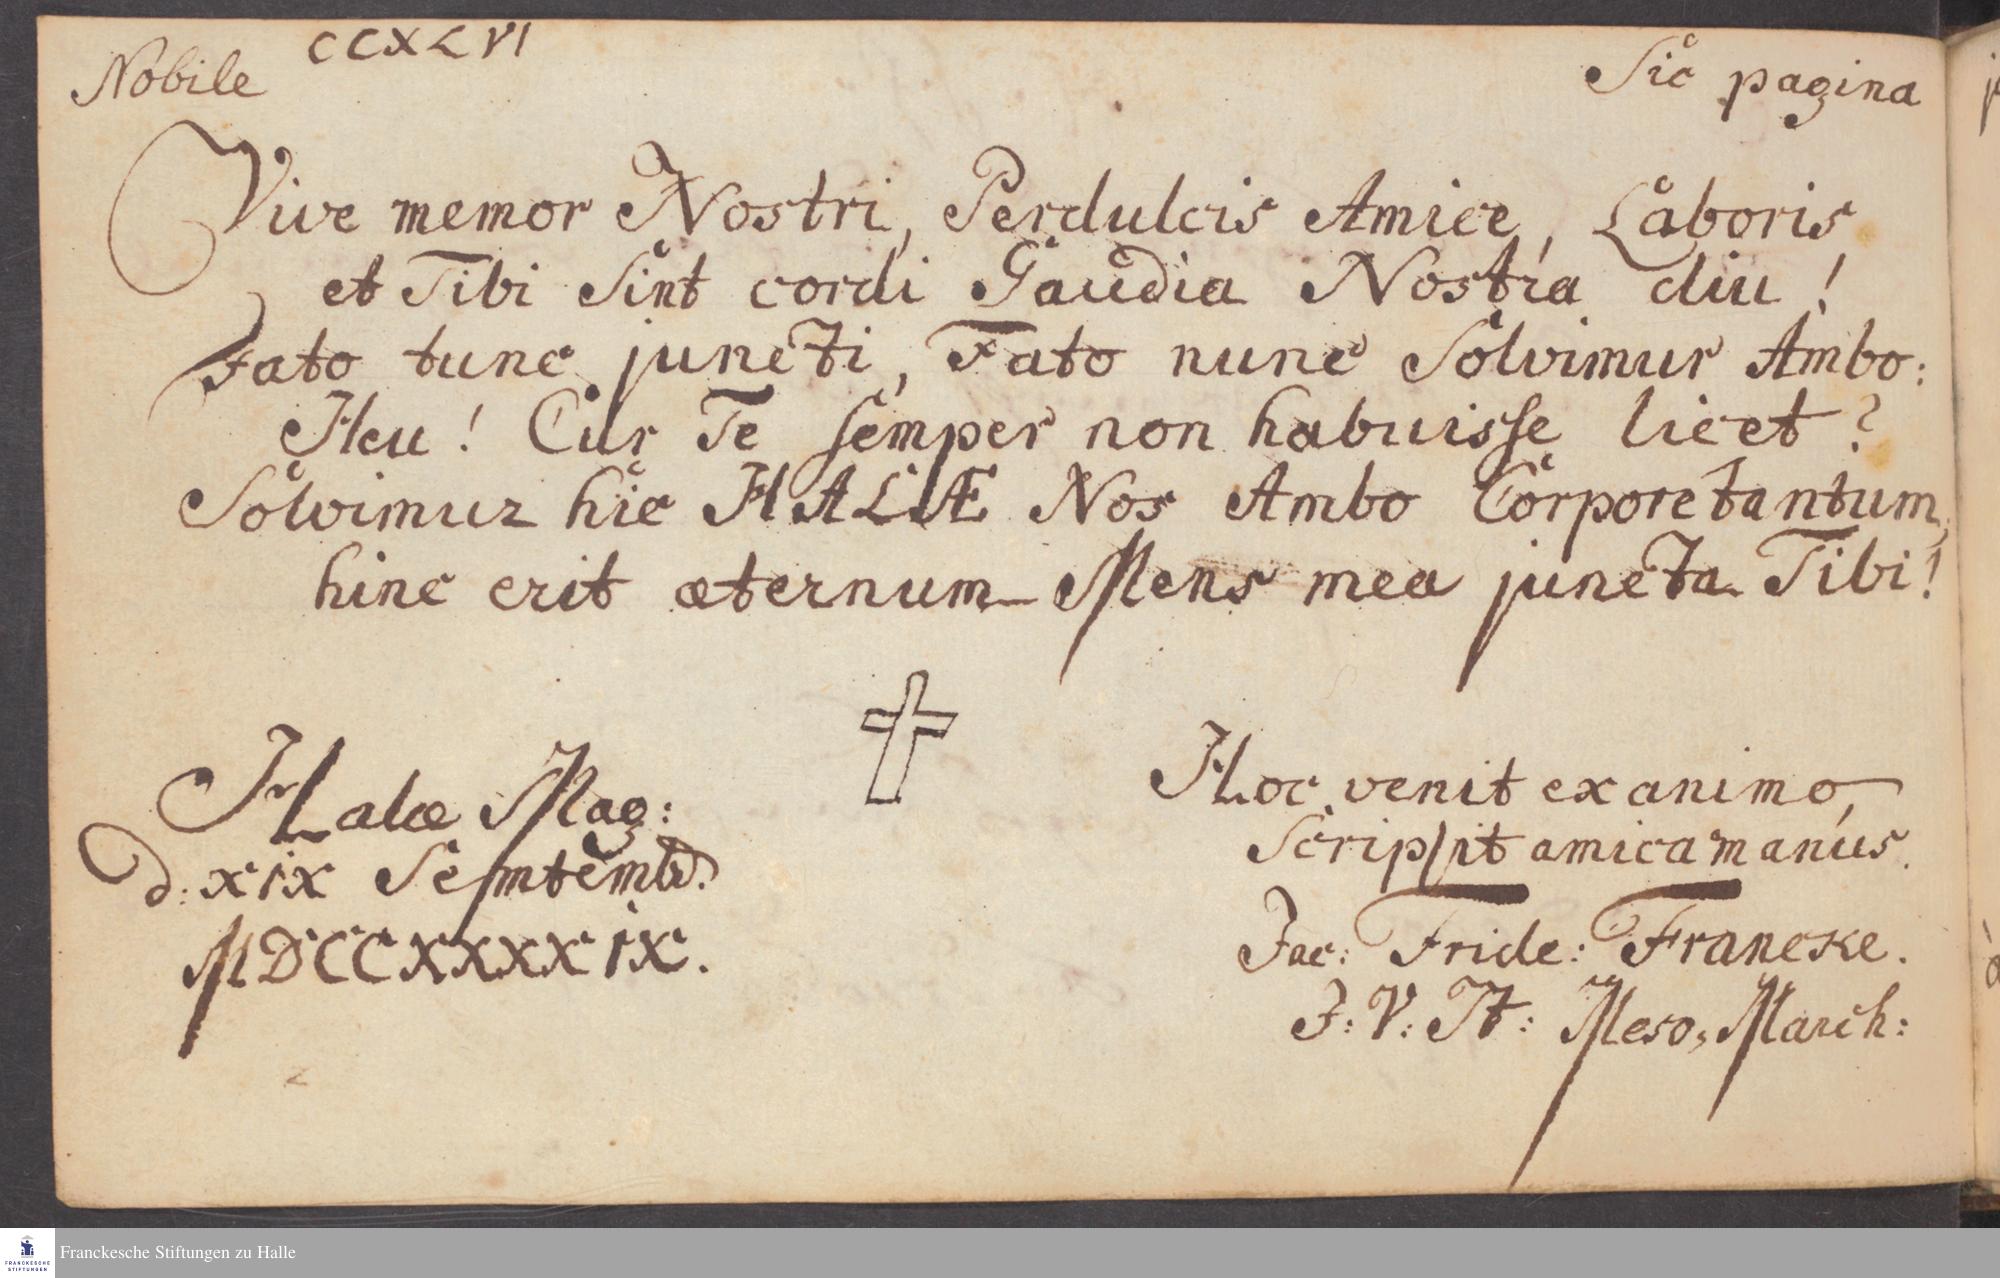 CCXLVI
Nobile Sic pagina
Vive memor Nostri, Perdulcis Amice, Laboris
et Tibi Sint cordi Gaudia Nostra diu!
Fato tunc juncti, Fato nunc Solvimur Ambo:
Heu! Cur Te semper non habuisse licet?
Solvimur hic HALÆ Nos Ambo Corpore tantum,
hinc erit æternum Mens mea juncta Tibi!
Halæ Mag:
d: XIX Septembr.
MDCCXXXXIX.
Hoc venit ex animo,
Scripsit amica manus.
Jac: Fride: Francke.
J: V: St: Meso, March:
Franckesche Stiftungen zu Halle
FRANCKESCHE
STIFTUNGEN